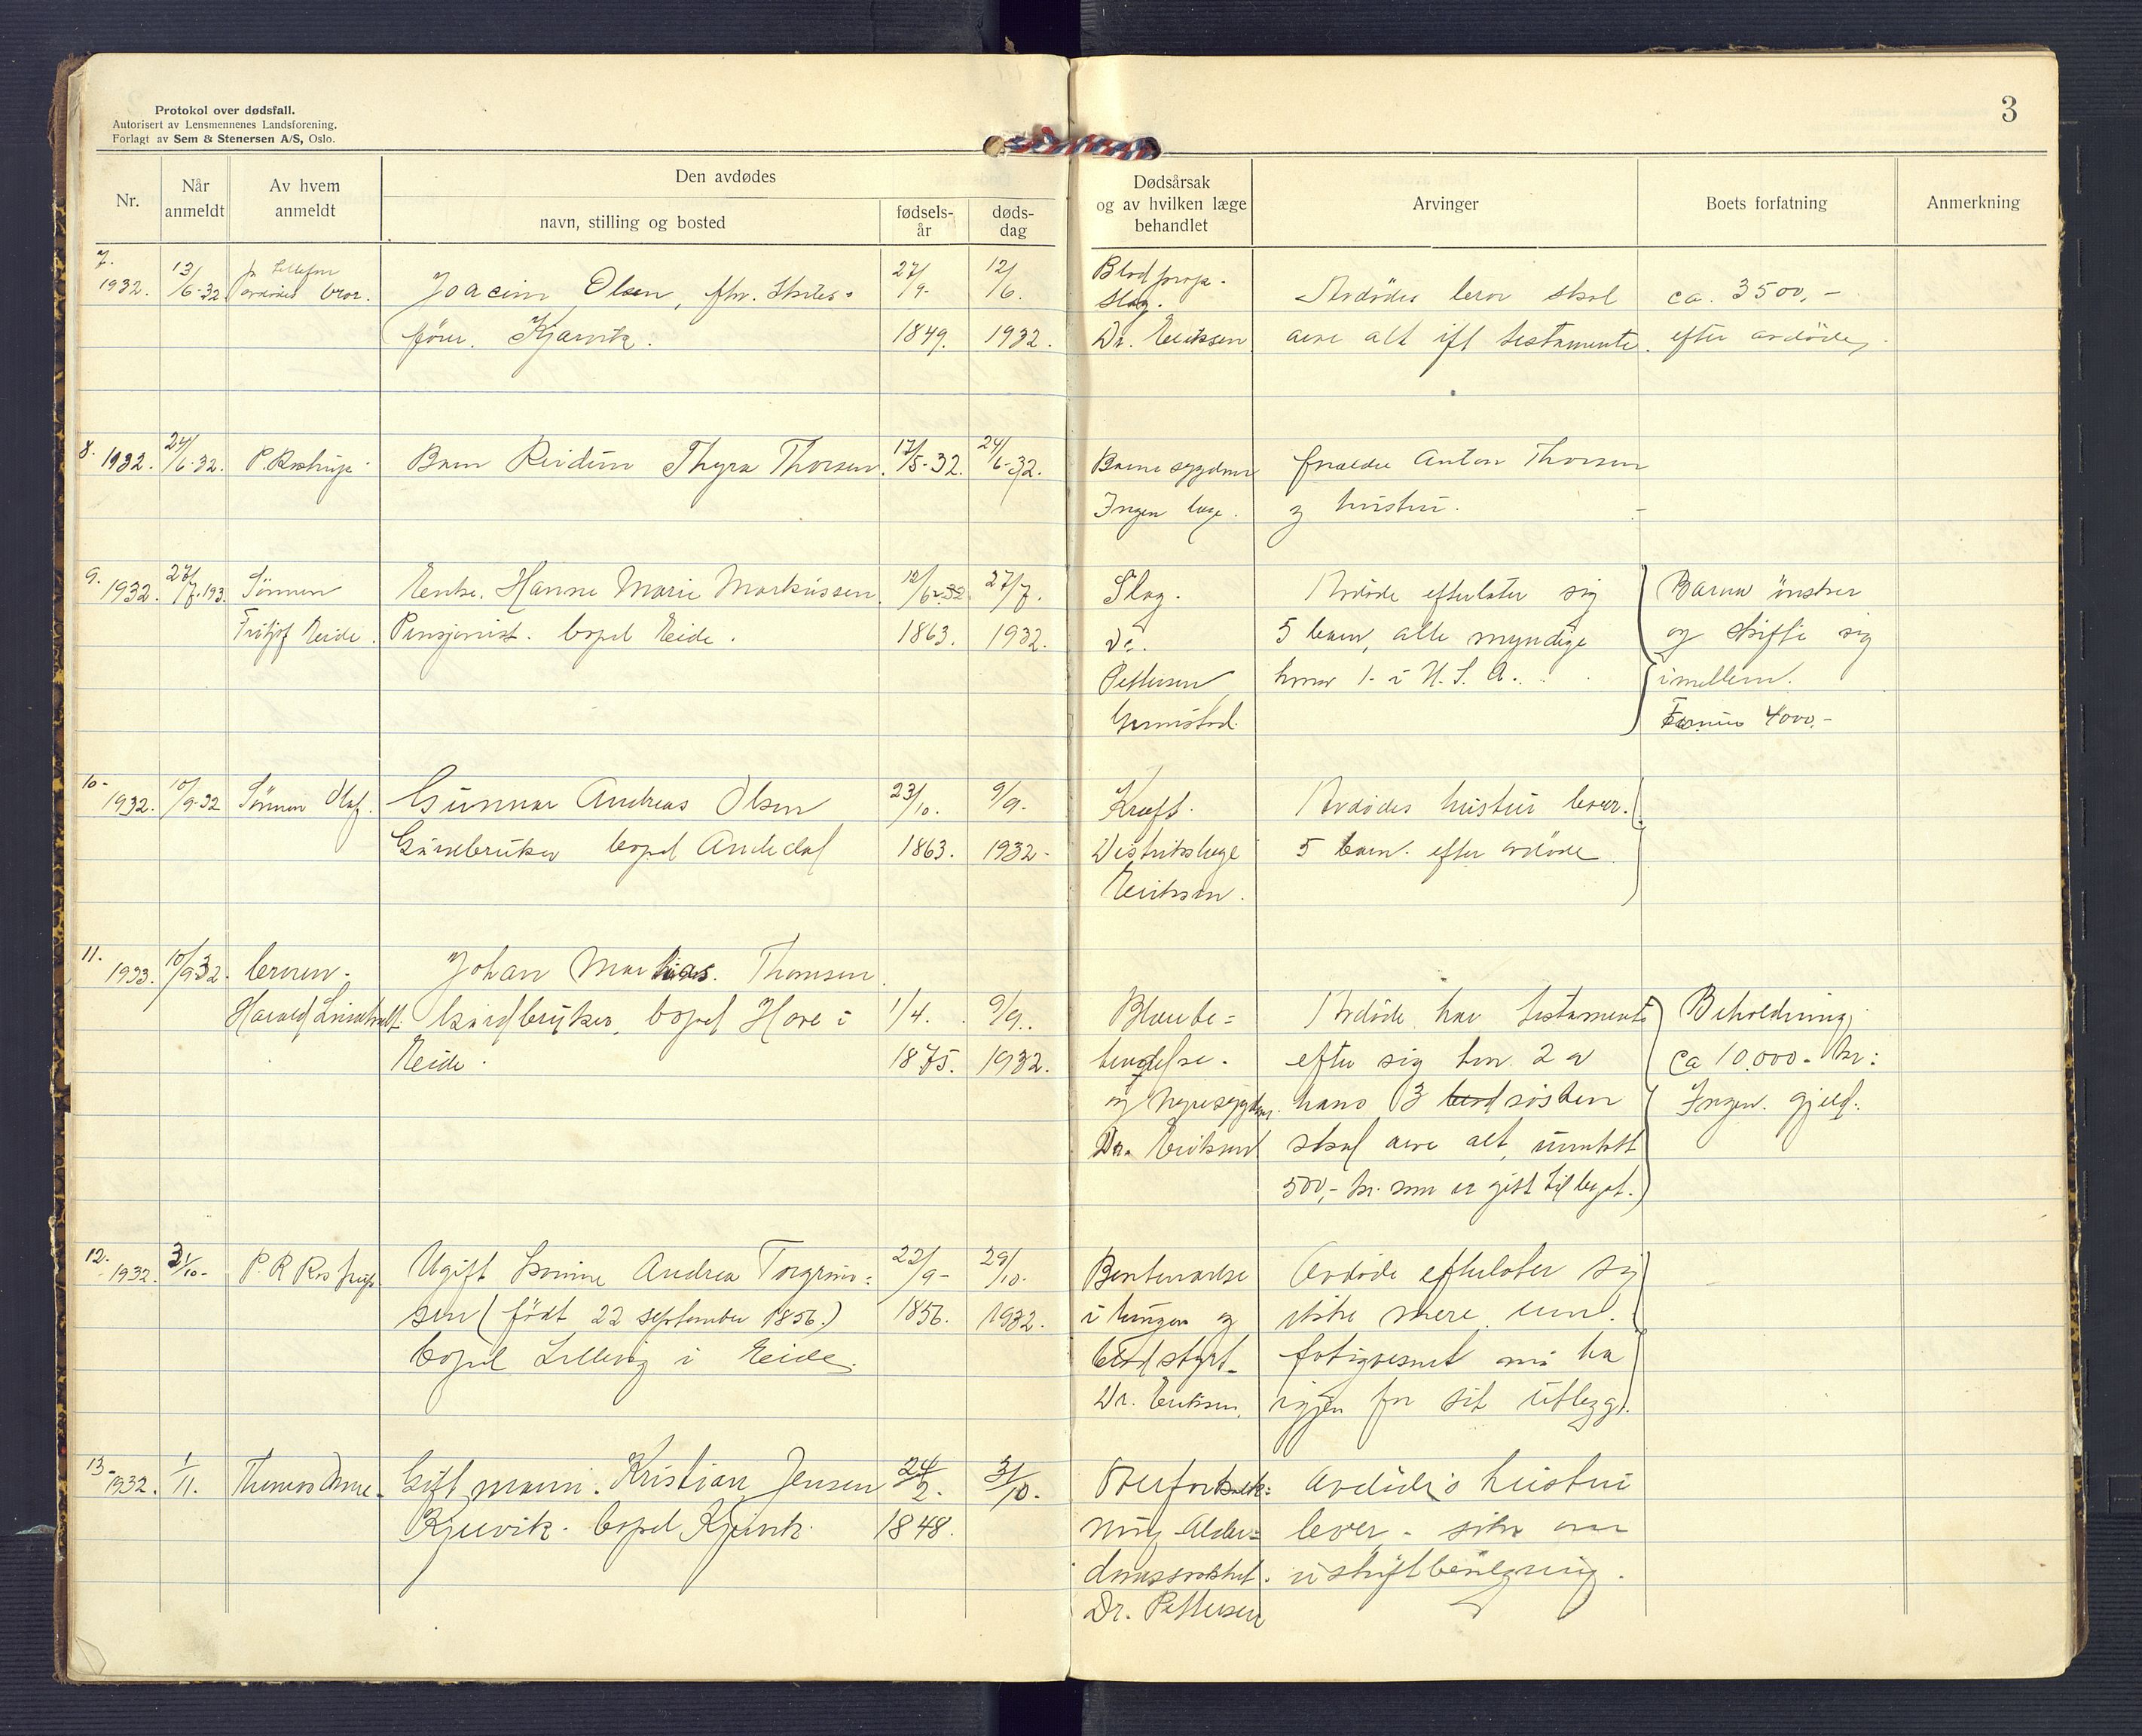 Protokol over dødsfall.
Autorisert av Lensmennenes Landsforening.
Forlagt av Sem & Stenersen A/S, Oslo.
3
Nr.
Når anmeldt
Av hvem anmeldt
Den avdødes
navn, stilling og bosted
fødsels-år
døds-dag
Dødsårsak og av hvilken læge behandlet
Arvinger
Boets forfatning
Anmerkning
7. 1932. 13/6-32 avdødes bror.
Joacim Olsen, fhv. Skibs-
fører. Kjørvik.
27/9- 1849. 12/6. 1932.
Blodprop.
Slag.
Dr. Eriksen
Avdødes bror skal
arve alt ift testamente.
ca. 3500,-
efter avdøde,
8. 1932. 24/6-32. P. Rostrup
Barn Reidun Thyra Thorsen.
17/5-32. 24/6-32.
Barnesygdom
Ingen læge.
foreldre Anton Thorsen
og hustru.
9. 1932. 27/7.193 Sønnen
Fritjof Eide.
Enke. Hanne Marie Markussen.
Pensjonist. bopel Eide.
12/6-32 1863. 27/7. 1932.
Slag.
Dr.
Pettersen
Grimstad.
Avdøde efterlater sig
5 barn, alle myndige
hvorav 1. i U.S.A.
Barna ønsker
og skifte sig
imellem.
Formue 4000.-
10- 1932. 10/9-32 Sønnen Olaf.
Gunnar Andreas Olsen
Gårdbruker bopel Ardedal
23/10. 1863. 9/9. 1932-
Kræft.
Distriktslæge
Eriksen.
Avdødes hustru lever.
5 barn. efter avdøde
11. 1933. 10/9-32. broren.
Harald
Johan Mathias. Thomsen
Gårdbruker, bopel Hove i
Eide.
1/4. 1875. 9/9. 1932.
Blærebe=
tendelse.
og nyresygdom.
Dr. Eriksen
Avdøde har testamente
efter sig hvor 2 av
hans 3 søsken
skal arve alt, unntatt
500,- kr. som er gitt til legat.
Beholdning
ca 10.000.- kr:
Ingen gjeld.
12. 1932. 31/10- P. R Rostrup
Ugift kvinne Andrea Torgrim=
sen (født 22 september 1856.)
bopel Lillevig i Eide.
22/9- 1856. 29/10. 1932.
i lungen og
Dr. Eriksen,
Avdøde efterlater sig
ikke mere enn
fatigvesenet må ha
igjen for sit utlegg.
13- 1932. 1/11. Thomas
Gift mann. Kristian Jensen
Kjervik. bopel Kjervik.
24/2. 1848. 31/10.
Åreforkalk=
ning Alder=
domssvakhet.
Dr. Pettersen
Avdødes hustru
lever - sitter
uskiftbevilgning.